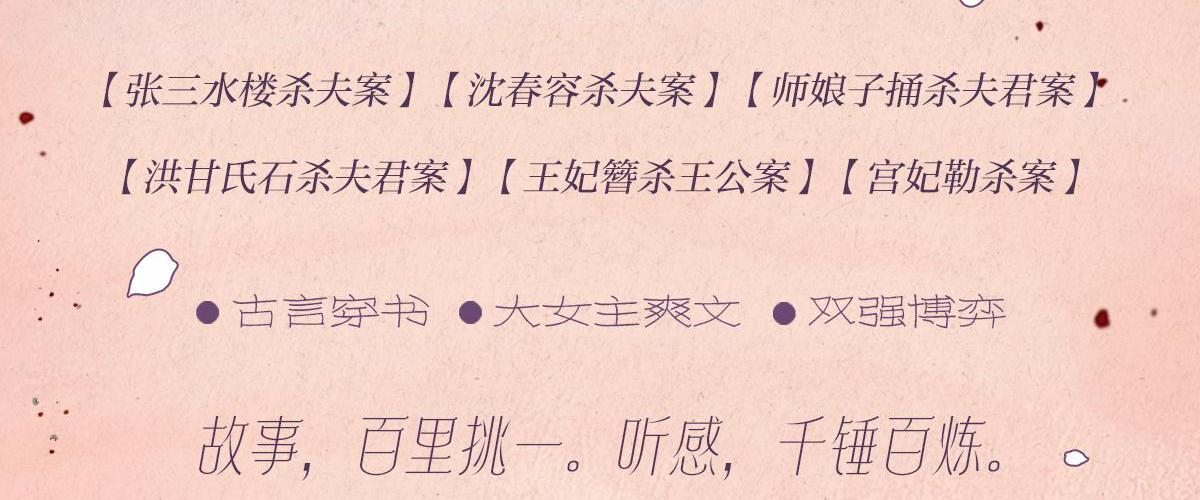 【张三水楼杀夫案】【沈春容杀夫案】【师娘子捅杀夫君案】
【洪甘氏石杀夫君案】【王妃簪杀王公案】【宫妃勒杀案】
●古言穿书 ●大女主爽文 ●双强博弈
故事，百里挑一。听感，千锤百炼。